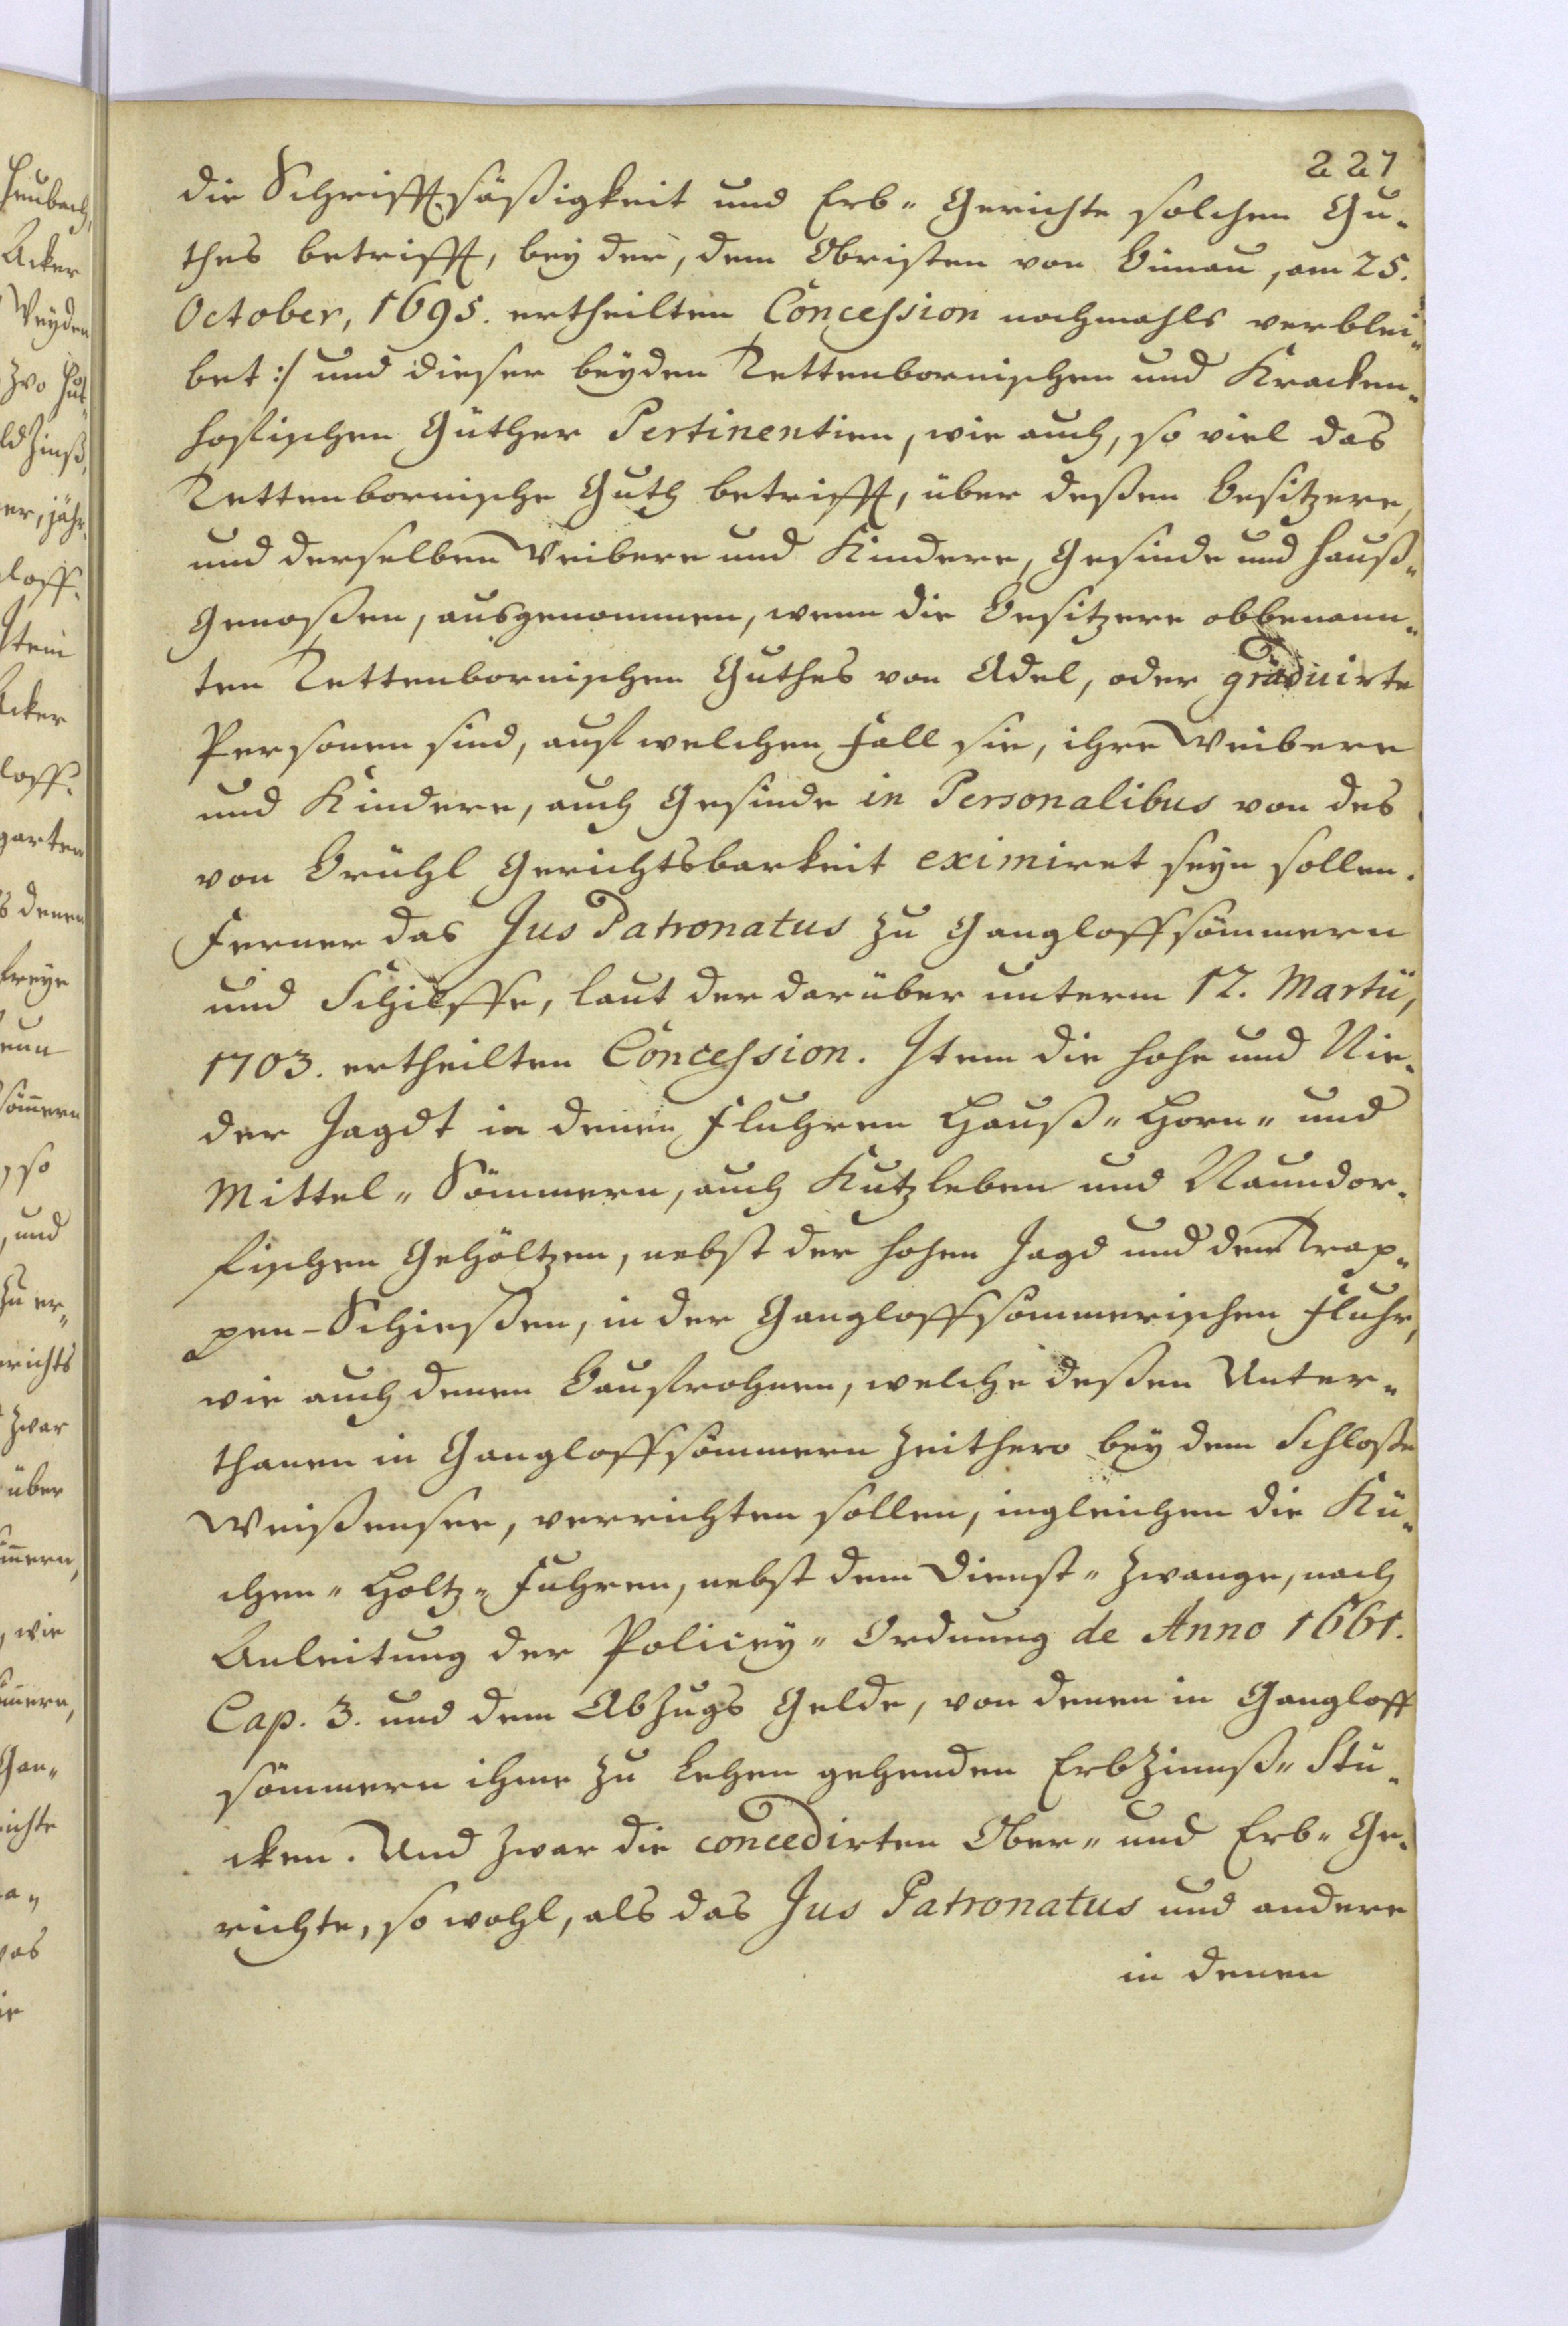 227
die Schrifftsäßigkeit und Erb- Gerichte solchen Gu-
thes betrifft, bey der, dem Obristen von Bünau, am 25.
October, 1695. ertheilten Concession nochmahls verblei-
bet :/ und dieser beyden Kettenbornischen und Kracken-
hofischen Güther Pertinentien, wie auch, so viel das
Kettenbornische Guth betrifft, über deßen Besitzere,
und derselben Weibere und Kindere, Gesinde und Hauß-
Genoßen, ausgenommen, wenn die Besitzere obbenann-
ten Kettenbornischen Guthes von Adel, oder graduirte
Personen sind, auf welchen Fall sie, ihre Weibere
und Kindere, auch Gesinde in Personalibus von des
von Brühl Gerichtsbarkeit eximiret seyn sollen.
Ferner das Jus Patronatus zu Gangloffsömmern
und Schilffe, laut der darüber unterm 12. Martii,
1703. ertheilten Concession. Item die hohe und Nie-
der Jagdt in denen Fluhren Hauß- Horn- und
Mittel- Sömmern, auch Kutzleben und Naundor-
fischen Gehöltzen, nebst der hohen Jagd und dem Trap-
pen-Schiessen, in der Gangloffsömmerischen Fluhr,
wie auch denen Baufrohnen, welche deßen Unter-
thanen in Gangloffsömmern zeithero bey dem Schloße
Weißensee, verrichten sollen, ingleichen die Kü-
chen- Holtz- Fuhren, nebst dem Dienst- Zwange, nach
Anleitung der Policey- Ordnung de Anno 1661.
Cap. 3. und dem Abzugs Gelde, von denen in Gangloff
sömmern ihme zu Lehen gehenden Erbzinnß- Stü-
cken. Und zwar die concedirten Ober- und Erb- Ge-
richte, so wohl, als das Jus Patronatus und andere
in denen